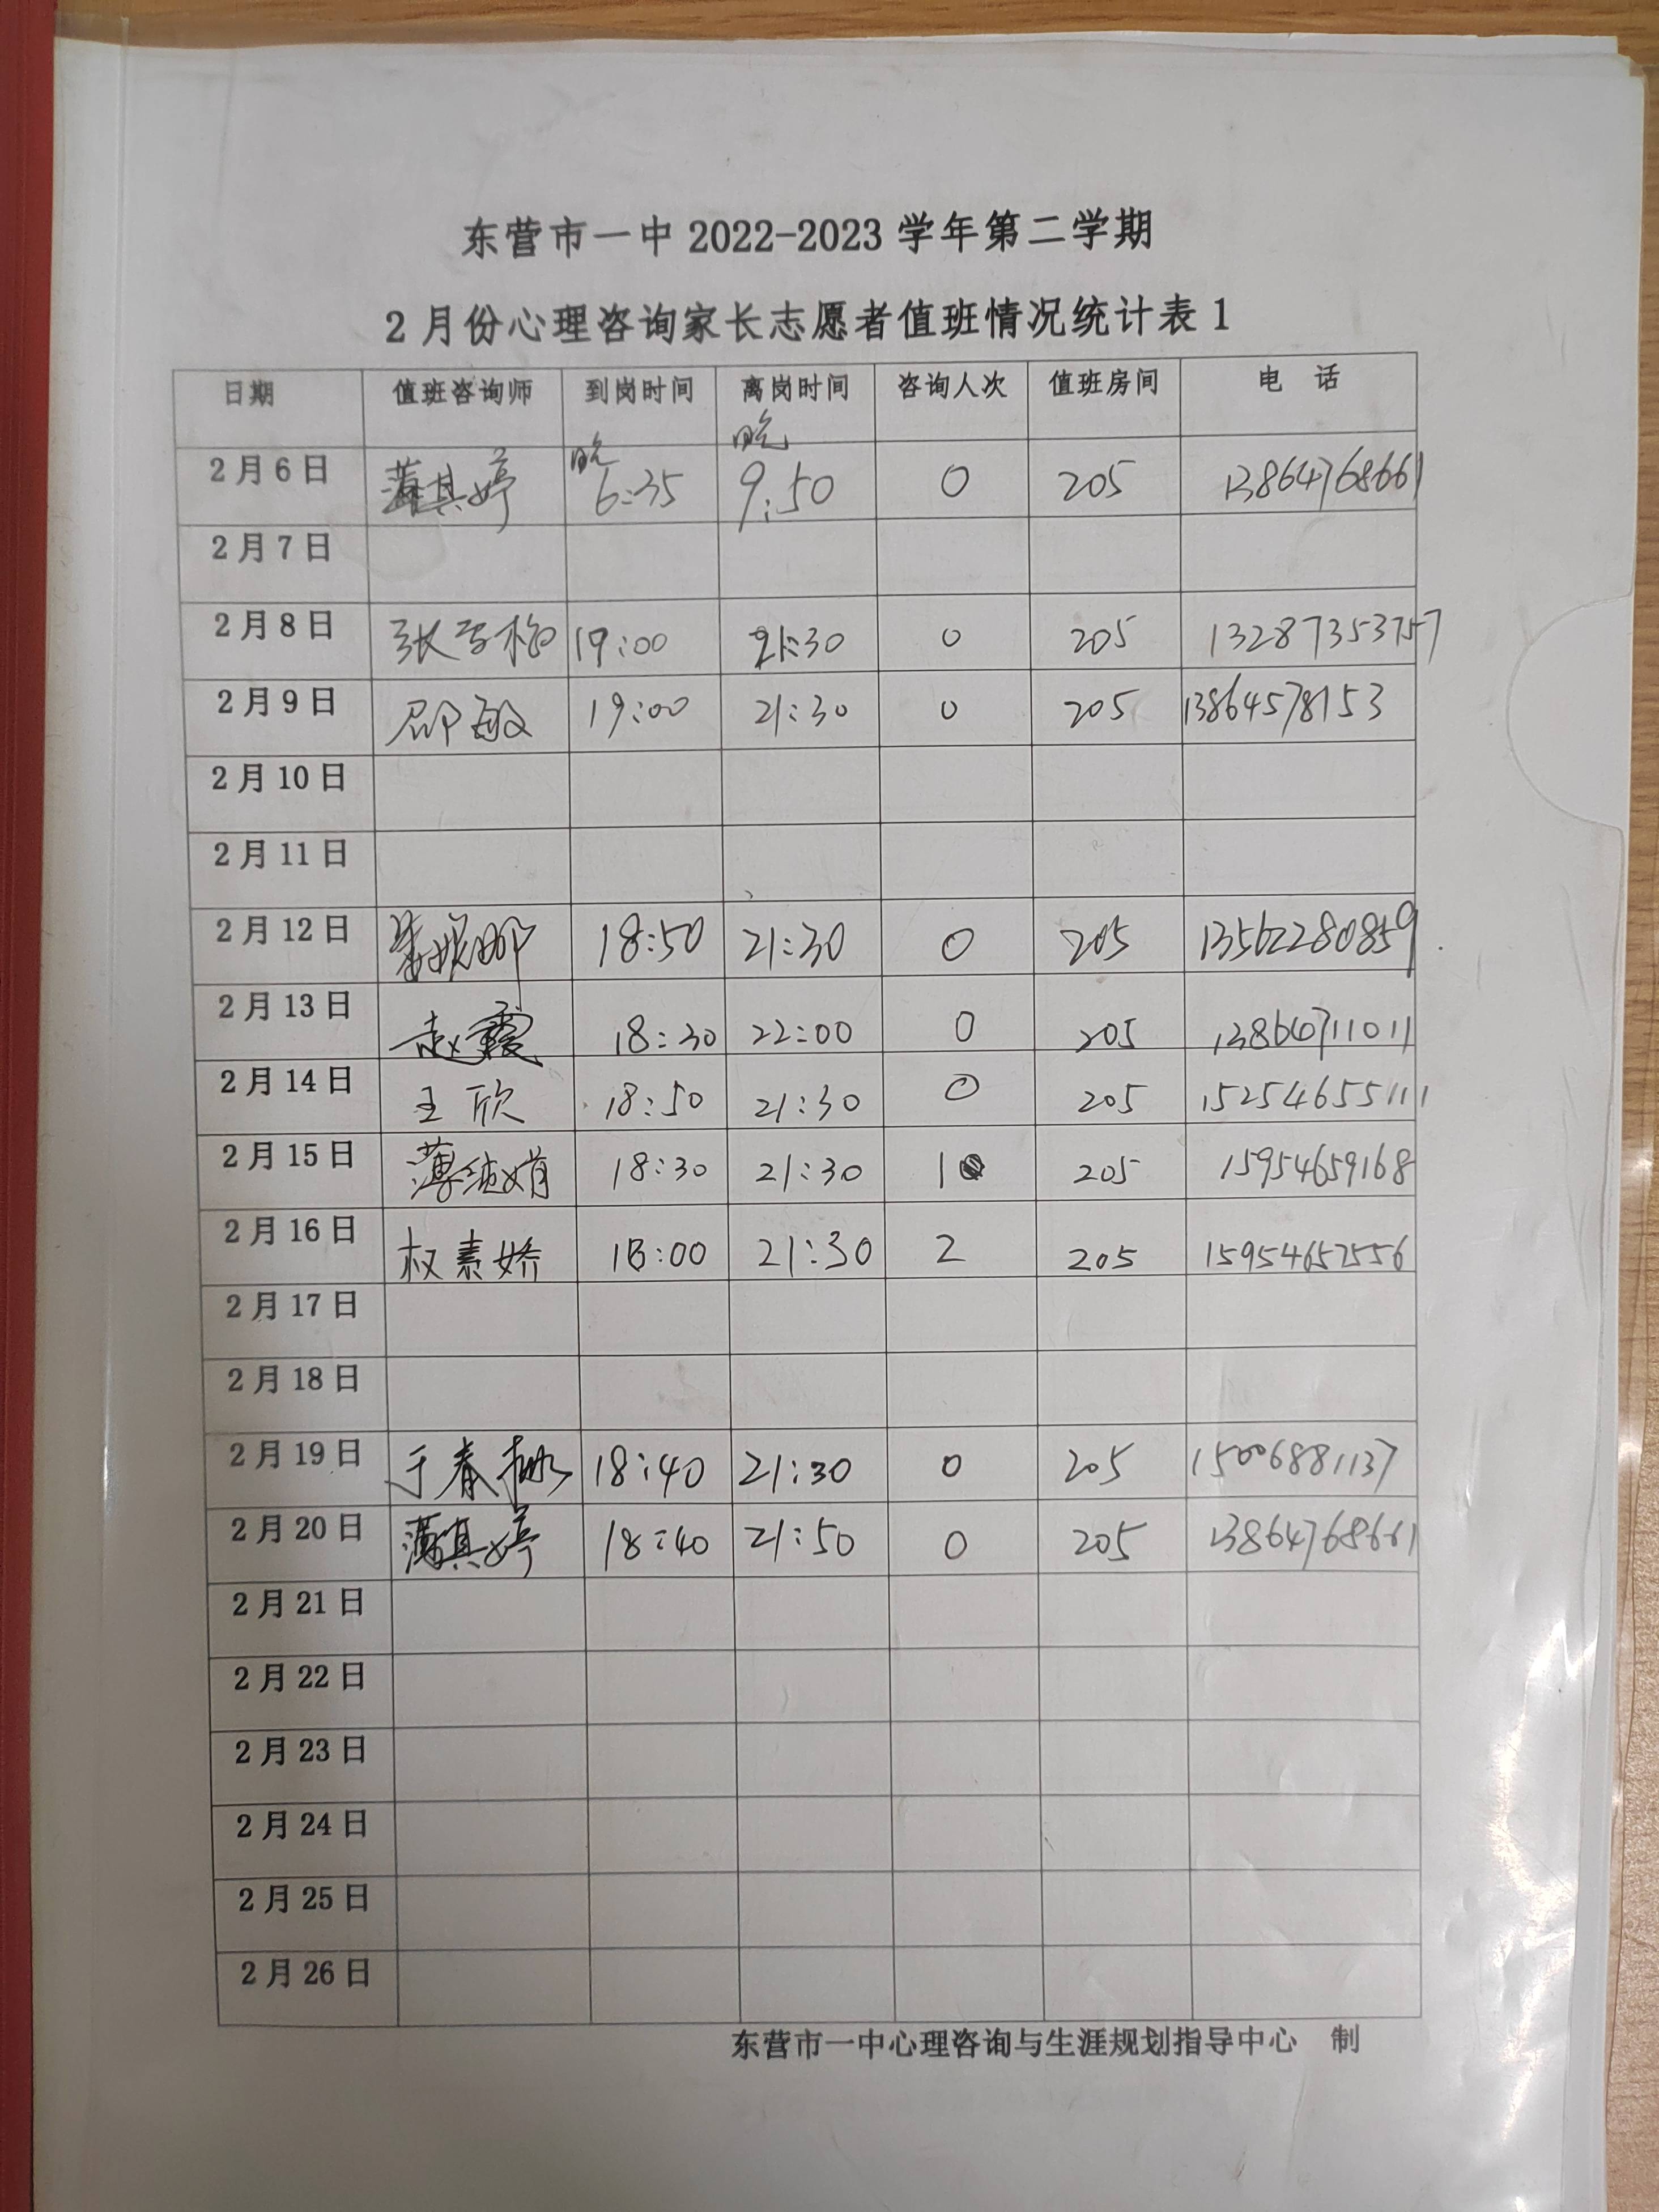 东营市一中 2022-2023 学年第二学期
2月份心理咨询家长志愿者值班情况统计表1
日期 值班咨询师 到岗时间 离岗时间 咨询人次 值班房间 电 话
2月6日 薄其婷 晚6:35 晚9:50 0 205 13864768661
2月7日
2月8日 张学梅 19:00 21:30 0 205 13287353757
2月9日 邵敏 19:00 21:30 0 205 13864578153
2月10日
2月11日
2月12日 18:50 21:30 0 205 13562280859
2月13日 赵霞 18:30 22:00 0 205 13864711011
2月14日 王欣 18:50 21:30 0 205 15254655111
2月15日 薄纯娟 18:30 21:30 1 205 15954659168
2月16日 权素娇 18:00 21:30 2 205 15954652556
2月17日
2月18日
2月19日 于春桃 18:40 21:30 0 205 15006881137
2月20日 薄其婷 18:40 21:50 0 205 13864768661
2月21日
2月22日
2月23日
2月24日
2月25日
2月26日
东营市一中心理咨询与生涯规划指导中心 制